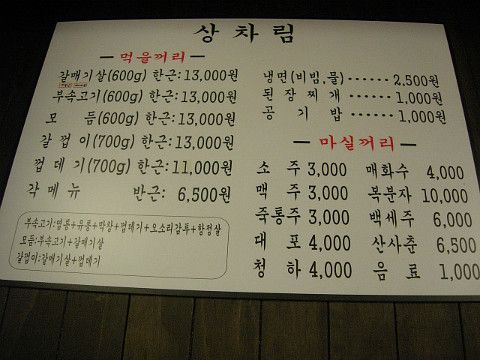 상차림
먹을꺼리
갈매기살(600g) 한근:13,000원
부속고기(600g) 한근:13,000원
모 듬(600g) 한근:13,000원
갈껍이(700g) 한근:13,000원
껍데기(700g) 한근:11,000원
각메뉴 반근: 6,500원
부속고기:염통+유통+막창+껍데기+오소리감투+항정살
모듬:부속고기+갈매기살
갈껍이:갈매기살+껍데기
냉면(비빔,물)······2,500원
된장찌개······1,000원
공기밥······1,000원
마실꺼리
소주 3,000
맥주 3,000
죽통주 3,000
대포 4,000
청하 4,000
매화수 4,000
복분자 10,000
백세주 6,000
산사춘 6,500
음료 1,000